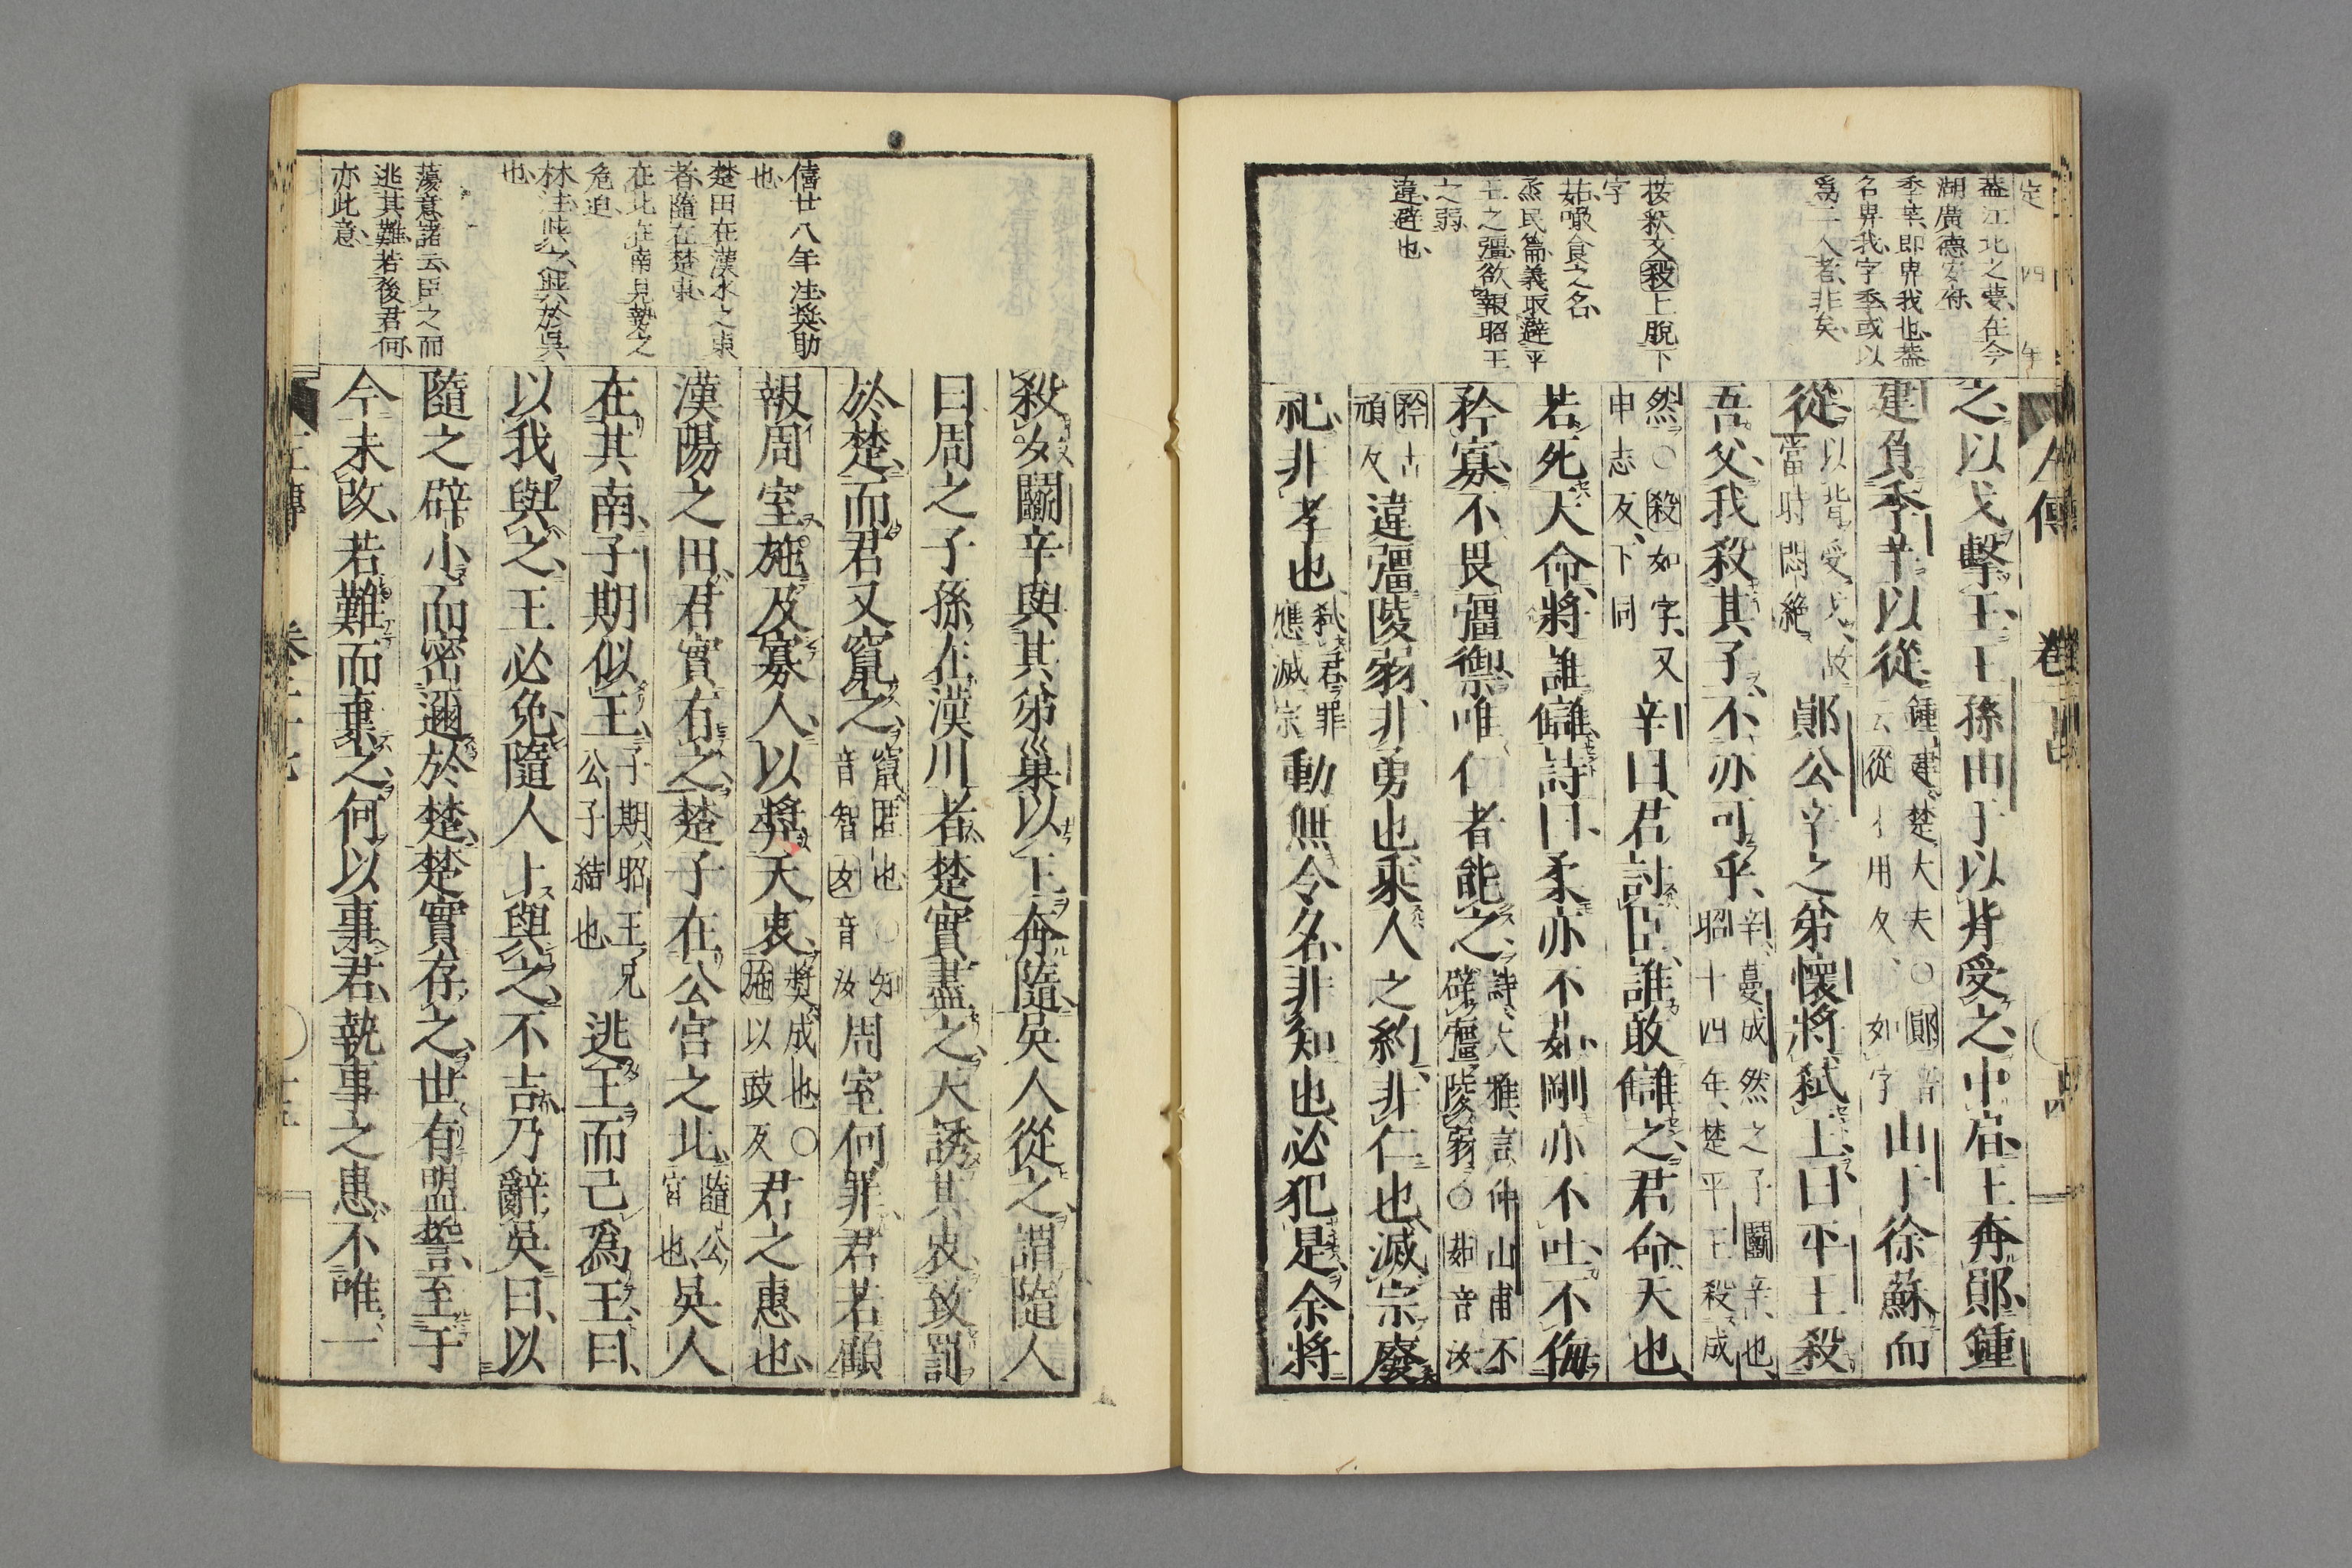 定四年
蓋江北之夢、在今
湖廣德安府
季芉、即畀我也、蓋
名畀我、字季、或以
爲二人者、非矣、
按釈文殺上脫下
字
茹噉食之名、
烝民篇、義取避平
王之彊、欲報昭王
之弱、
違避也、
左傳 卷二十七 〇 十四
之、以戈擊王、王孫由于以背受之、中肩、王奔鄖、鍾
建負季芉以從、鍾建、楚大夫〇鄖音云從才用反、 如字 由于徐蘇而
從、以背受戈、故當時悶絶 鄖公辛之弟懷將弑王、曰、平王殺
吾父、我殺其子、不亦可乎、辛、蔓成然之子鬭辛也、昭十四年、楚平王殺成
然〇殺如字、又申志反、下同 辛曰、君討臣、誰敢讎之、君命天也、
若死天命、將誰讎、詩曰、柔亦不茹、剛亦不吐、不侮
矜寡、不畏彊禦、唯仁者能之、詩、大雅、言仲山甫不辟彊陵弱〇茹音汝
矜古頑反 違彊陵弱、非勇也、乘人之約、非仁也、滅宗廢
祀、非孝也、弑君罪應滅宗 動無令名、非知也、必犯是、余將
僖廿八年注、奬助
也、
楚田在漢水之東
者、隨在楚東、
在北、在南見執之
危迫、
林注、與之、與於吳
也、
蕩意諸云、臣之而
逃其難、若後君何、
亦此意、
殺女、鬭辛與其弟巢以王奔隨、吳人從之、謂隨人
曰、周之子孫在漢川者、楚實盡之、天誘其衷、致罰
於楚、而君又竄之、竄匿也〇知音智女音汝 周室何罪、君若顧
報周室、施及寡人、以奬天衷、奬、成也〇施以豉反 君之惠也、
漢陽之田、君實有之、楚子在公宮之北、隨公宮也、 吳人
在其南、子期似王、子期、昭王兄公子結也 逃王而己爲王、曰、
以我與之、王必免、隨人卜與之、不吉、乃辭吳曰、以
隨之辟小、而密邇於楚、楚實存之、世有盟誓、至于
今未改、若難而棄之、何以事君、執事之惠、不唯一
左傳 卷二十七 〇 十五